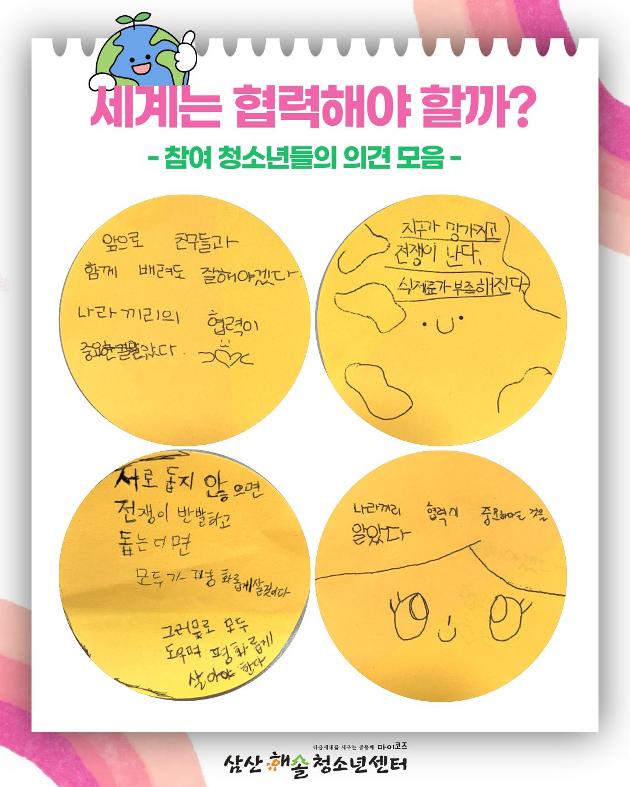 세계는 협력해야 할까?
- 참여 청소년들의 의견 모음 -
앞으로 친구들과
함께 배려도 잘해야겠다.
나라 끼리의 협력이
중요한걸 알았다.
지구가 망가지고
전쟁이 난다,
식재료가 부족해진다,
서로 돕지 않으면
전쟁이 반발하고
돕는다면
모두가 평화롭게살것이다
그러므로 모두
도우며 평화롭게
살아야 한다
나라끼리 협력이 중요하다는 것을
알았다
다음세대를 세우는 공동체 마이코즈
삼산 해솔 청소년센터